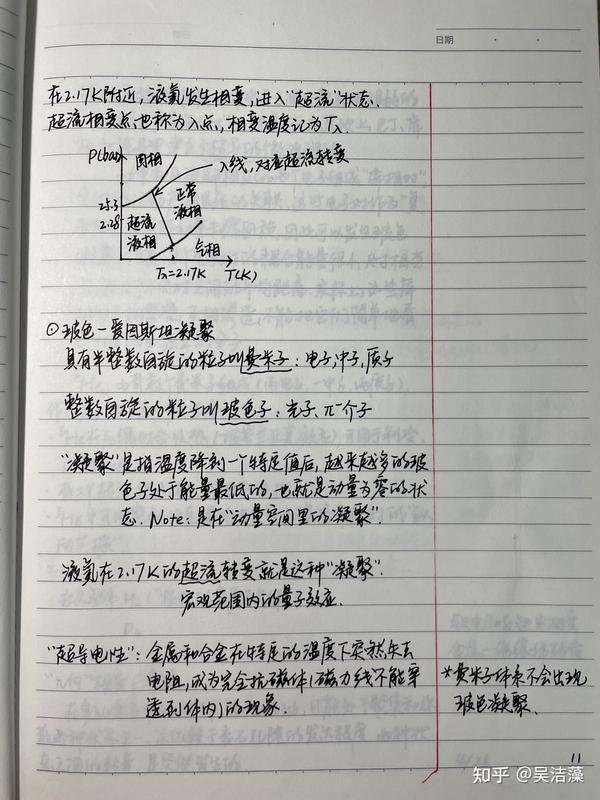 日期
在2.17K附近,液氦发生相变,进入"超流"状态.
超流相变点也称为λ点,相变温度记为Tλ.
P(bar)
固相
λ线,对应超流转变
25.3
正常
液相
2.28
超流
液相
气相
Tλ=2.17K
T(K)
⊙玻色-爱因斯坦凝聚
具有半整数自旋的粒子叫费米子:电子,中子,质子
整数自旋的粒子叫玻色子:光子,π-介子
"凝聚"是指温度降到一个特定值后,越来越多的玻
色子处于能量最低的,也就是动量为零的状
态.Note:是在"动量空间里的凝聚".
液氦在2.17K的超流转变就是这种"凝聚".
宏观范围内的量子效应.
"超导电性":金属和合金在特定的温度下突然失去
电阻,成为完全抗磁体(磁力线不能穿
透到体内)的现象.
*费米子体系不会出现
玻色凝聚.
11
知乎 @吴洁藻